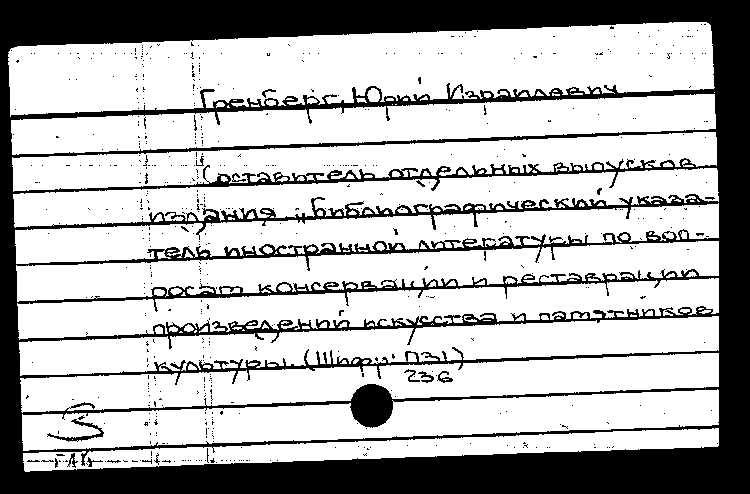 Гренберг, Юрий Израилевич
Составитель отдельных выпусков
издания „Библиографический указа-
тель иностранной литературы по воп-
росам консервации и реставрации
произведений искусства и памятников
культуры. (Шифр: П31)
236